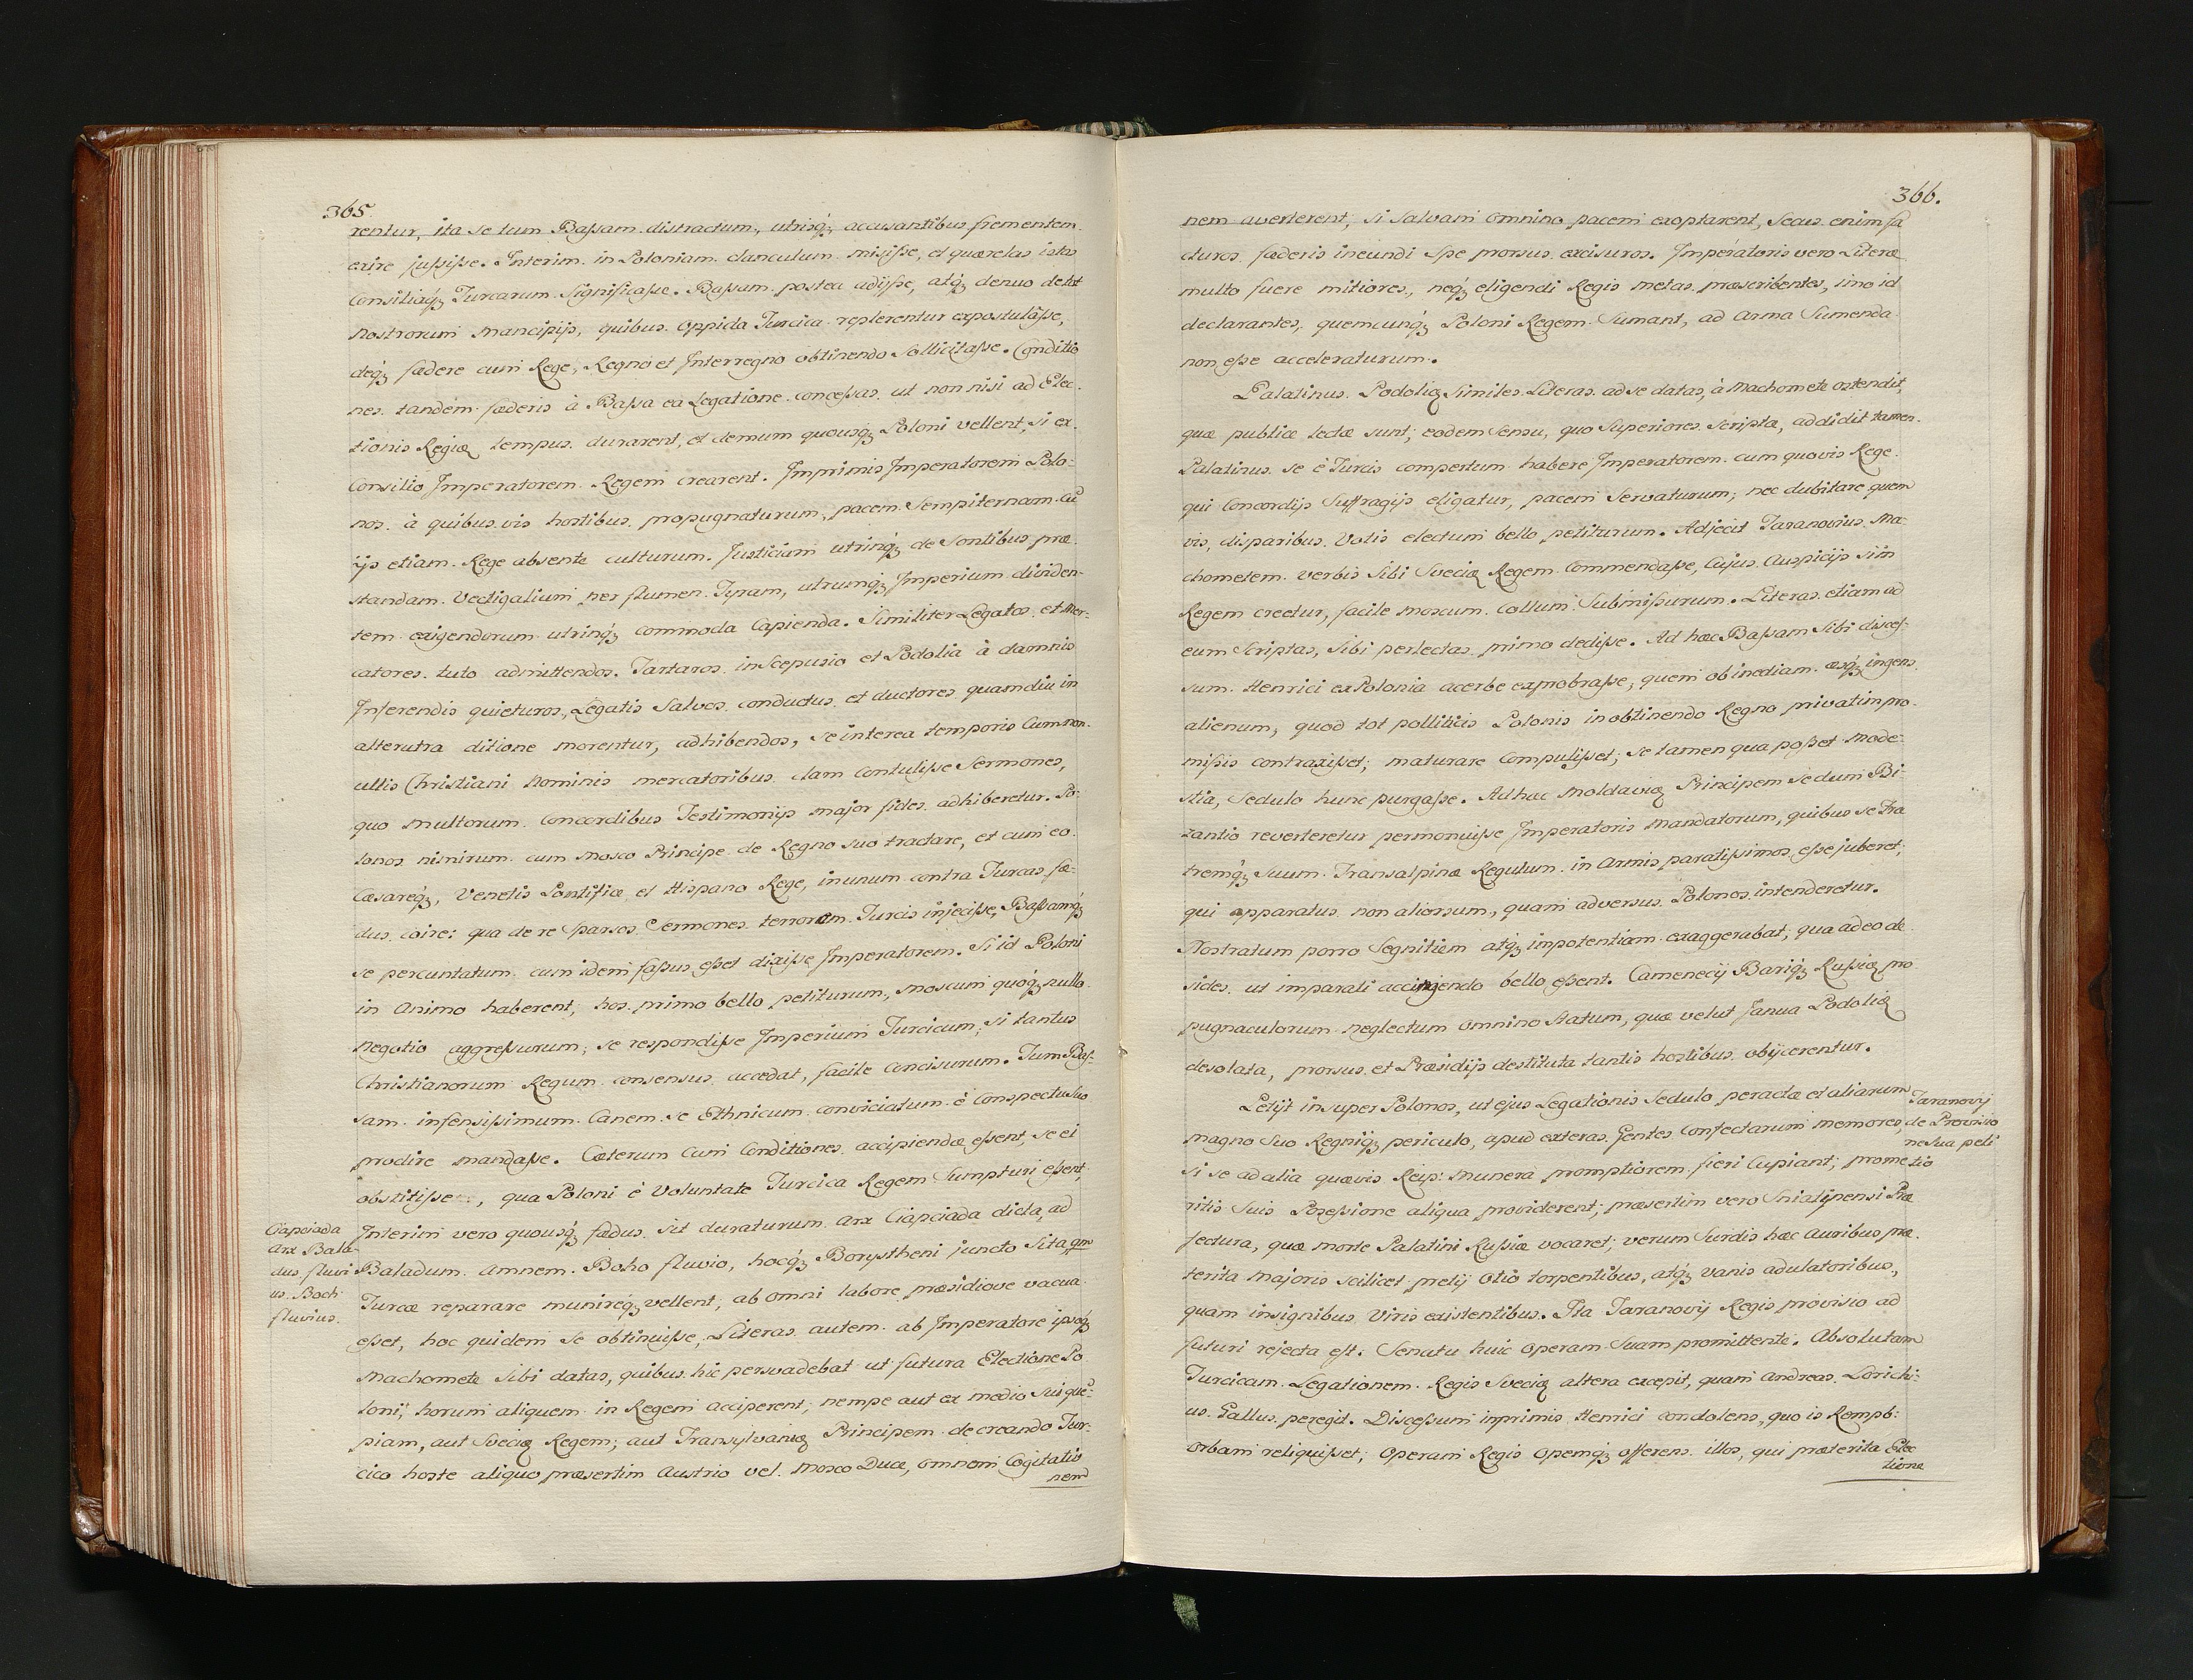 365
rentur, ita se tum Baſsam distractum, utrisq́ʒ accusantibus frementem
exire juſsiſse. Interim in Poloniam clanculum misiſse, et quærelas istas
Consiliaq́ʒ Turcarum Significaſse. Baſsam postea adijſse, atq́ʒ denuo de tot
Nostrorum Mancipijs, quibus oppida Turcica replerentur expostulâſse,
deq́ʒ fædere cum Rege, Regno et Interregno obtinendo Sollicitaſse. Conditio
nes tandem fæderis à Baſsa ea Legatione conceſsas, ut non nisi ad Elec-
tionis Regiæ tempus durarent, et demum quousq́ʒ Poloni vellent, si ex
Consilio Imperatorem Regem crearent. Imprimis Imperatorem Polo-
nos à quibus vis hostibus propugnaturum, pacem Sempiternam cū
ijs etiam Rege absente culturum. Justiciam utrinq́ʒ de Sontibus præ
standam. Vectigalium per flumen Tyram, utrumq́ʒ Imperium dividen-
tem exigendorum utrinq́ʒ commoda Capienda. Similiter Legatos et Mer-
catores tuto admittendos. Tartaros in Scepusio et Podolia à damnis
Inferendis quieturos, Legatis Salvos conductus et ductores quamdiu in
alterutra ditione morentur, adhibendos, se interea temporis Cum non
ullis Christiani Nominis mercatoribus clam Contuliſse Sermones,
quo Multorum Concordibus Testimonijs major fides adhiberetur. Po-
lonos nimirum cum Mosco Principe de Regno suo tractare, et cum eo
Cæsareq́ʒ, Venetis Pontifice et Hispano Rege, in unum contra Turcas fæ-
dus coire: qua de re Sparsos Sermones terrorem Turcis injeciſse, Baſsamq́ʒ
se percuntatum cum idem faſsus eſset dixiſse Imperatorem. Si id Poloni
in Animo haberent, hos primo bello petiturum, Moscum quoq́ʒ nullo
Negotio aggreſsurum; se respondiſse Imperium Turcicum, si tantus
Christianorum Regum consensus accedat, facile Concisurum. Tum Baſ-
sam infensiſsimum Canem se Ethnicum conviciatum è Conspectu Suo
prodire mandaſse. Cæterum Cum Conditiones accipiendæ eſsent, se ei
obstitiſse, qua Poloni è Voluntate Turcica Regem Sumpturi eſsent,
Interim vero quousq́ʒ fædus sit duraturum Arx Ciapciada dicta, ad
Baladum Amnem Boho fluvio, hocq́ʒ Borystheni juncto Sita, qm̄
Turcæ reparare munireq́ʒ vellent, ab omni labore præsidiove vacua
eſset, hoc quidem se obtinuiſse, Literas autem ab Imperatore ipsoq́ʒ
Machomete Sibi datas, quibus hic persvadebat ut futura Electione Po
loni, horum aliquem in Regem acciperent, nempe aut ex medio sui que-
piam, aut Sveciæ Regem; aut Transylvaniæ Principem de creando Tur-
cico hoste aliquo præsertim Austrio vel Mosco Duce, omnem Cogitatio
nem
Ciapciada
Arx Bala-
dus fluvi
us. Boch
fluvius.
366.
nem averterent, si Salvam omnino pacem exoptarent, Secus enim fa
cturos fæderis ineundi Spe prorsus excisuros. Imperatoris vero Literæ
multo fuere mitiores, neq́ʒ eligendi Regis metas præscribentes, imo id
declarantes, quemcunq́ʒ Poloni Regem Sumant, ad Arma Sumenda
non eſse acceleraturum.
Palatinus Podoliæ Similes Literas ad se datas, à Machomete ostendit,
quæ publice lectæ sunt; eodem Sensu, quo Superiores Scriptæ, addidit tamen
Palatinus se è Turcis compertum habere Imperatorem cum quovis Rege
qui Concordijs Suffragijs eligatur, pacem Servaturum; nec dubitare quem
vis, disparibus Votis electum bello petiturum. Adjecit Taranovius Ma-
chometem verbis Sibi Sveciæ Regem Commendaſse, Cujus Auspicijs si in
Regem creetur, facile Moscum Collum Submiſsurum. Literas etiam ad
eum Scriptas, Sibi perlectas primo dediſse. Ad hæc Baſsam Sibi disceſ-
sum Henrici ex Polonia acerbe exprobraſse, quem ob inediam æsq́ʒ ingens
alienum, quod tot polliticis Polonis in obtinendo Regno privatim pro
miſsis contraxiſset; maturare Compuliſset; se tamen qua poſset Mode-
stia, Sedulo hunc purgaſse. Ad hæc Moldaviæ Principem se dum Bi-
zantio reverteretur permonuiſse Imperatoris Mandatorum, quibus se Fra
tremq́ʒ Suum Transalpinæ Regulum in Armis paratiſsimos eſse juberet;
qui apparatus non aliorsum, quam adversus Polonos intenderetur.
Nostratum porro Segnitiem atq́ʒ impotentiam exaggerabat; qua adeo de
sides ut imparati accingendo bello eſsent. Camenecij Bariq́ʒ Ruſsiæ pro
pugnaculorum neglectum omnino Statum, quæ velut Janua Podoliæ
desolata, prorsus et Præsidijs destituta tantis hostibus obijcerentur.
Petijt insuper Polonos, ut ejus Legationis Sedulo peractæ et aliarum
magno Suo Regniq́ʒ periculo, apud exteras Gentes Confectarum memores,
si se ad alia quævis Reip: Munera promptiorem fieri Cupiant; prome
ritis Suis Poſseſsione aliqua providerent; præsertim vero Snialinensi Præ
fectura, quæ morte Palatini Ruſsiæ vocaret; verum Surdis hæc Auribus præ-
terita Majoris scilicet pretij Otio torpentibus, atq́ʒ Vanis adulatoribus,
quam insignibus Viris existentibus. Ita Taranovij Regis provisio ad
futuri rejecta est. Senatu huic operam Suam promittente. Absolutam
Turcicam Legationem Regis Sveciæ altera excepit, quam Andreas Lorichi-
us Gallus peregit. Disceſsum inprimis Henrici condolens, quo is Rempb:
Orbam reliquiſset; Operam Regis Opemq́ʒ offerens illos, qui præterita Elec
tione
Taranovij
de Provisio
ne Sua peti
tio